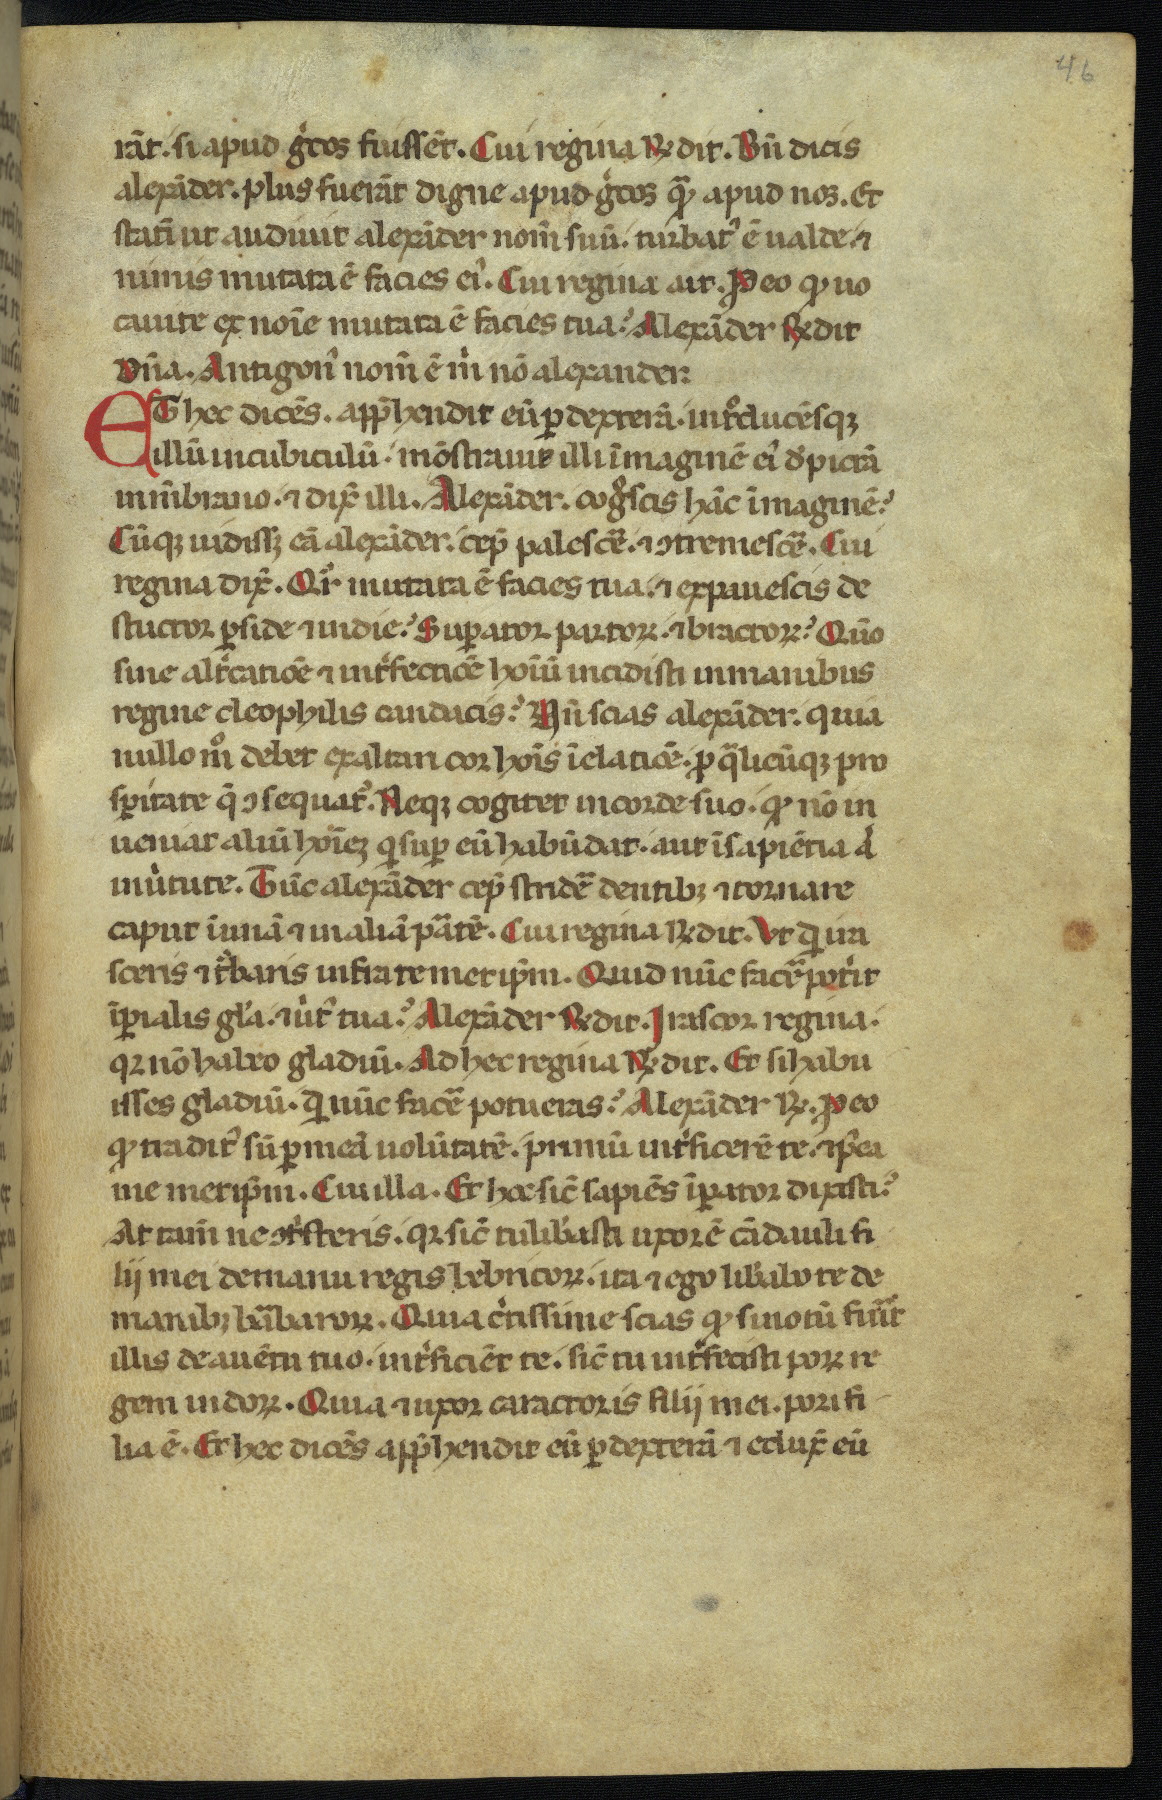 46
rāt. si apud g̃cos fuissēt. Cui regina R̃dit. Bn̄ dicis
alexāder. plus fuerāt digne apud g̃cos q̃ apud nos. Et
statī ut audiuit alexāder nom̄ suū. turbat᷒ ē ualde ⁊
nimis mutata ē facies ei᷒. Cui regina ait. P eo ꝙ uo
cauite ex noīe mutata ē facies tua? Alexāder R̃dit
Dn̄a. Antigon᷒ nom̄ ē m̍ nō alexander.
ET hec dicēs. app̃hendit eū ꝑ dexterā. introducēsqꝫ
illū in cubiculū. mōstrauit illi īmaginē ei᷒ dẽpictā
in mēbrano. ⁊ dix̄ illi. Alexāder. cogͦscis hāc īmaginē?
Cūqꝫ uidissꝫ eā alexāder. cep̄ palescẽ. ⁊ ꝯtremescẽ. Cui
regina dix̄. Qr̄ mutata ē facies tua. ⁊ expauescis de
structor ꝑside ⁊ indie? Suꝑator partoꝝ. ⁊ bractoꝝ? Quō
sine alt̃catiōe ⁊ int̃fectiōe hoīū incidisti in manibus
regine cleophilis candacis? Un̄ scias alexāder. quia
nullo mͦ debet exaltari cor hoīs ī elatiōe. ꝓ q̃licūqꝫ pro
sꝑitate q̄ ꝯsequat᷒. Neqꝫ cogitet in corde suo. ꝙ nō in
ueniat aliū hoīeꝫ q̍ suꝑ eū habūdat. aut ī sapiētia aͭ
in u̍tute. Tūc alexāder cep̄ stridẽ dentibꝫ ⁊ tornare
caput ī unā ⁊ in aliā ꝑ̃tē. Cui regina R̃dit. Vt q̍d ira
sceris ⁊ t̃baris infra te metip̄m. Quid nūc facẽ pot̃it
īꝑialis gl̃a. ⁊ u̍t᷒ tua? Alexāder R̃dit. Irascor regina.
qꝛ nō habeo gladiū. Ad hec regina R̃dit. Et si habu
isses gladiū. q̍d nūc facẽ potueras? Alexāder R̃. P eo
ꝙ tradit᷒ sū ꝑ meā uolūtatē. primū int̃ficerē te. ⁊ p̃ea
me metip̄m. Cui illa. Et hoc sic̄ sapiēs īꝑator dixisti?
At tam̄ ne ꝯt̃steris. qꝛ sic̄ tu lib̃asti uxorē cādauli fi
lij mei de manu regis bebricoꝝ. ita ⁊ ego lib̃abo te de
manibꝫ bar̃baroꝝ. Quia c̃tissime scias ꝙ si notū fuit̃
illis de auētu tuo. int̃ficiēt te. sic̄ tu int̃fecisti poꝝ re
gem indoꝝ. Quia ⁊ uxor caractoris filij mei. pori fi
lia ē. Et hec dicēs app̃hendit eū ꝑ dexterā ⁊ edux̄ eū